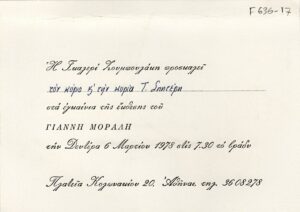 Γ 636-17
Ἡ Γκαλερί Ζουμπουλάκη προσκαλεῖ
τόν κύριο κ' τήν κυρία Τ. Σπητέρη
στά ἐγκαίνια τῆς ἔκθεσης τοῦ
ΓΙΑΝΝΗ ΜΟΡΑΛΗ
τήν Δευτέρα 6 Μαρτίου 1978 στίς 7.30 τό βράδυ
Πλατεῖα Κολωνακίου 20, Ἀθῆναι, τηλ. 3608278